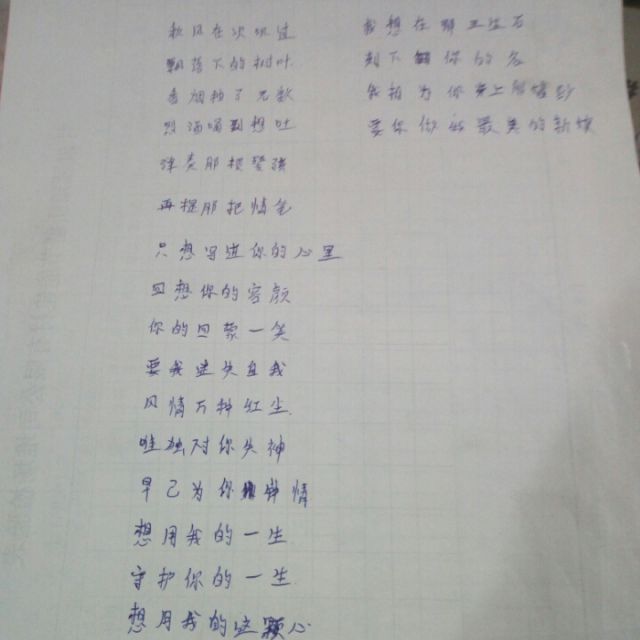 秋风在次吹过
飘落下的树叶
香烟抽了无数
烈酒喝到想吐
弹奏那根坚强
再提那把情毛
只想写进你的心里
回想你的容颜
你的回蒙一笑
要我迷失自我
风情万种红尘
唯独对你失神
早已为你钟情
想用我的一生
守护你的一生
想用我的这颗心
我想在那三生石
刻下你的名
我 为你
要你做 最美的新娘